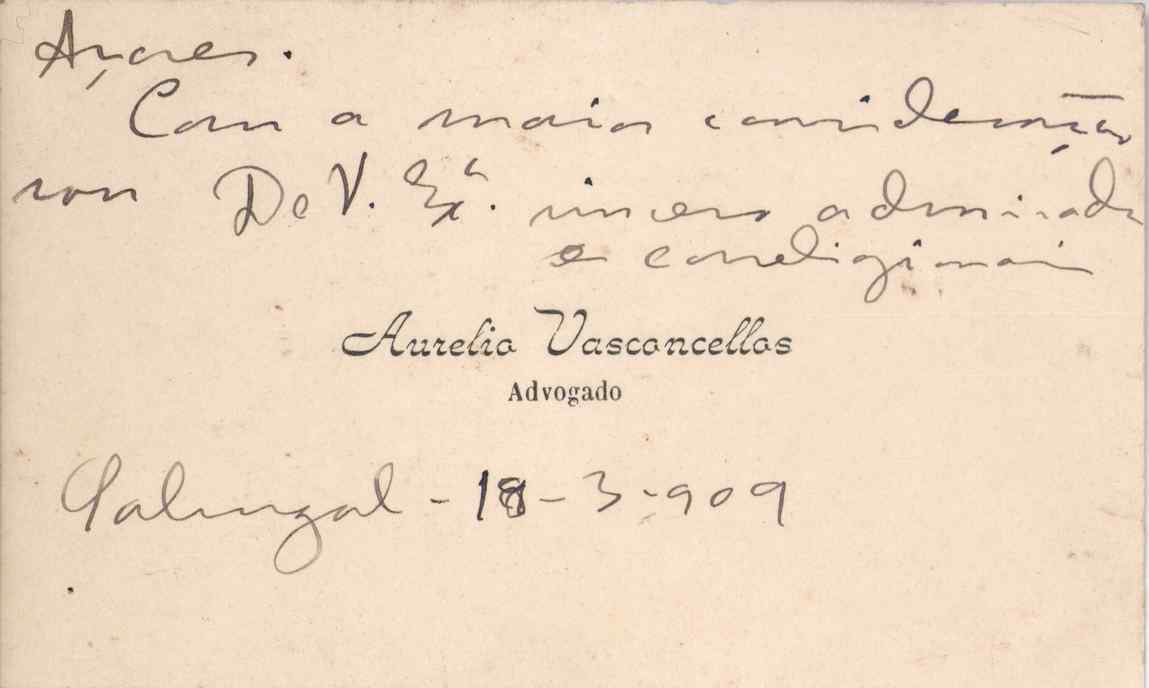 Açores.
Com a maior consideração
sou De V. Exª. sincero admirador
e correligionario
Aurelio Vasconcellos
Advogado
Sabugal - 18 - 3 - 909